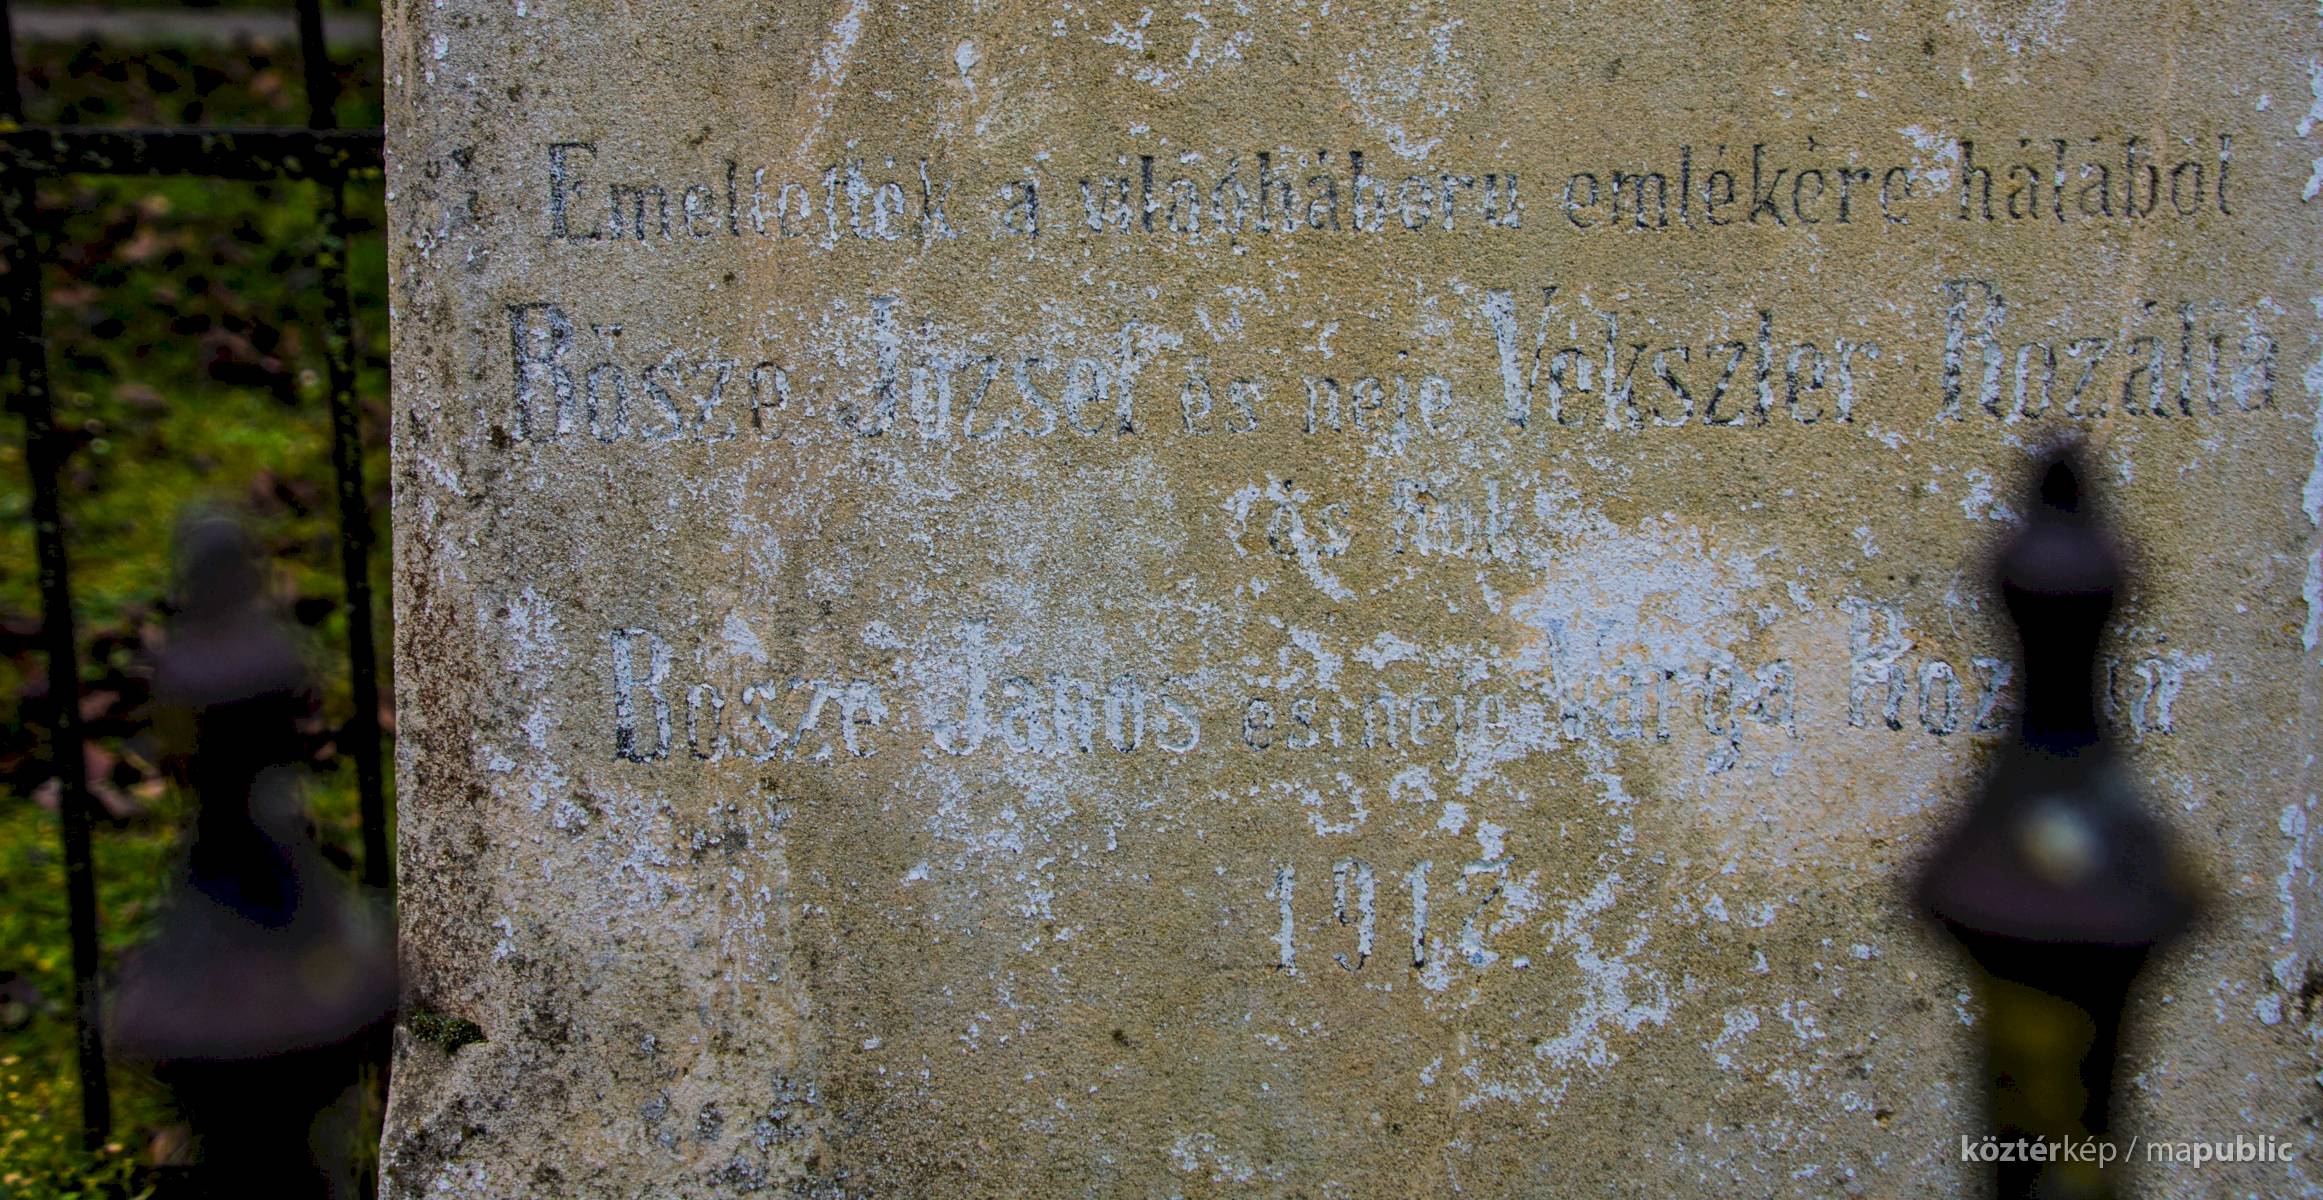 Emeltették a világháboru emlékére hálából
Bősze József és neje Vekszler Rozália
és fiuk
Bősze János és neje Varga
1917
köztérkép / mapublic